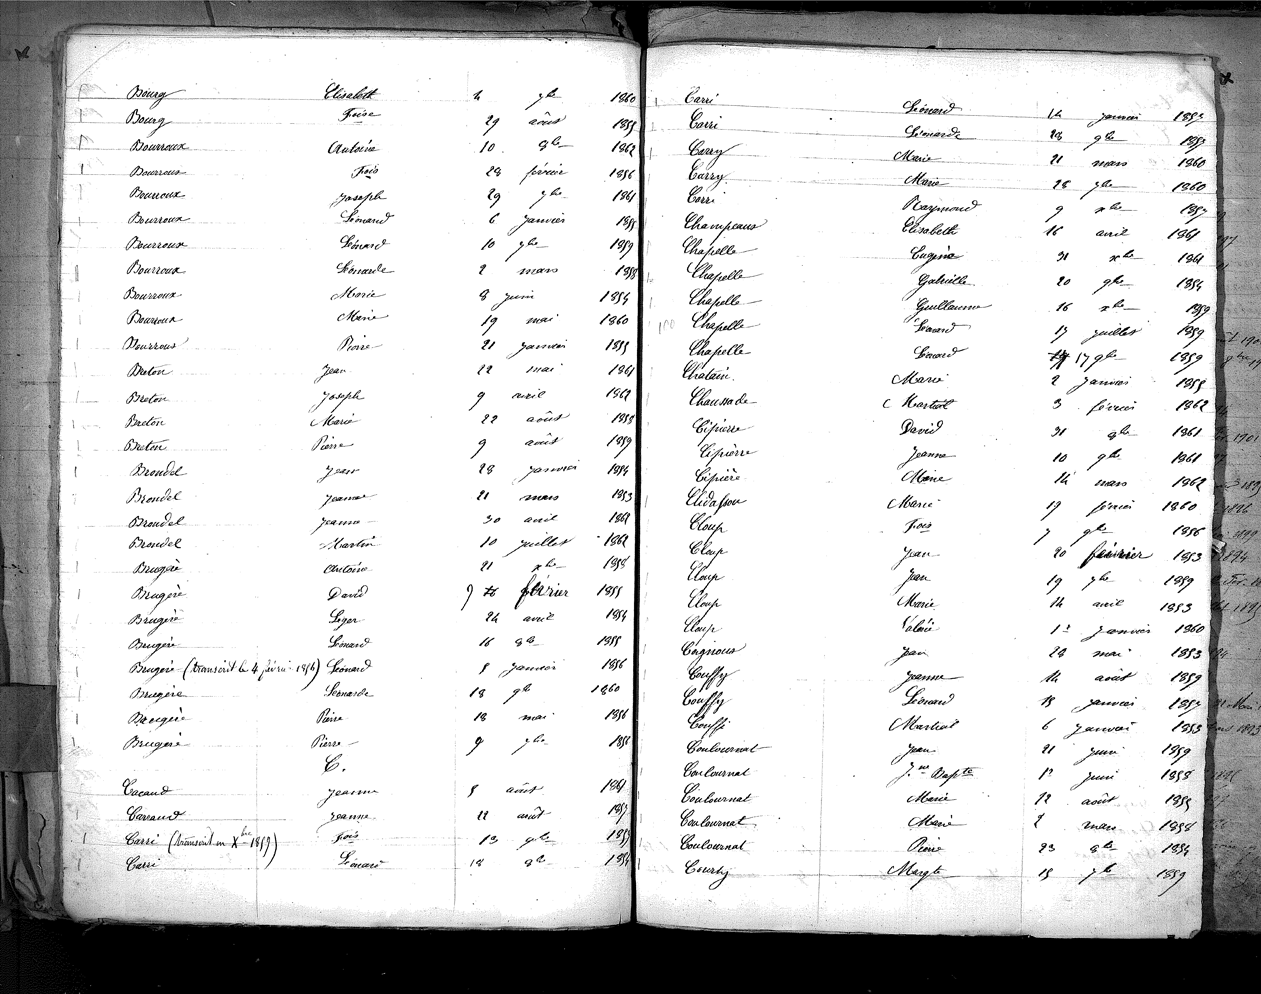 Bourg Elisabeth 4 7bre 1860
Bourg Foise 29 août 1855
Bourroux Antoine 10 8bre 1862
Bourroux Fois 28 février 1856
Bourroux Joseph 29 7bre 1861
Bourroux Léonard 6 janvier 1855
Bourroux Léonard 10 7bre 1859
Bourroux Léonarde 2 mars 1858
Bourroux Marie 8 juin 1854
Bourroux Marie 19 mai 1860
Bourroux Pierre 21 janvier 1855
Breton Jean 22 mai 1861
Breton Joseph 9 avril 1862
Breton Marie 22 août 1858
Breton Pierre 9 août 1859
Brondel Jean 28 janvier 1854
Brondel Jeanne 21 mars 1853
Brondel Jeanne 30 avril 1861
Brondel Martin 10 juillet 1862
Brugère Antoine 21 xbre 1858
Brugère David 9 février 1855
Brugère Léger 24 avril 1854
Brugère Léonard 16 8bre 1855
Brugère (transcrit le 4 février 1856) Léonard 5 janvier 1856
Brugère Léonarde 18 9bre 1860
Brugère Pierre 18 mai 1856
Brugère Pierre 9 7bre 1858
C.
Cacaud Jeanne 5 août 1861
Carraud Jeanne 22 août 1857
Carri (transcrit en Xbre 1859) Fois 13 9bre 1855
Carri Léonard 18 8bre 1854
Carri Léonard 14 janvier 1857
Carri Léonarde 28 9bre 1859
Carry Marie 21 mars 1860
Carry Marie 28 7bre 1860
Carri Raymond 9 xbre 1857
Champeaux Elisabeth 16 avril 1861
Chapelle Eugénie 31 xbre 1861
Chapelle Gabrielle 20 9bre 1854
Chapelle Guillaume 16 xbre 1859
Chapelle Léonard 17 juillet 1859
Chapelle Léonard 17 9bre 1859
Chatain Marie 2 janvier 1855
Chaussade Martial 3 février 1862
Cipierre David 31 8bre 1861
Cipierre Jeanne 10 9bre 1861
Cipière Marie 14 mars 1862
Clidassou Marie 19 février 1860
Cloup Fois 7 9bre 1856
Cloup Jean 20 février 1853
Cloup Jean 19 7bre 1859
Cloup Marie 14 avril 1853
Cloup Valérie 1er janvier 1860
Cognoux Jean 28 mai 1853
Couffy Jeanne 14 août 1859
Couffy Léonard 15 janvier 1857
Couffi Martial 6 janvier 1853
Coulournat Jean 21 juin 1859
Coulournat Jne Bapte 1er juin 1858
Coulournat Marie 12 août 1855
Coulournat Marie 2 mars 1858
Coulournat Pierre 23 8bre 1854
Courty Margte 15 7bre 1859